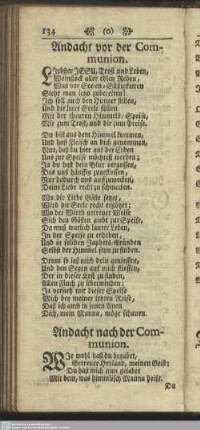 134 (0)
Andacht vor der Com-
munion.
Liebster JESU, Trost und Leben,
Weinstock aller edlen Reben,
Was vor Seelen-
Sieht man jetzt zubereiten!
Ich soll auch den Hunger stillen,
Und die leere Seele füllen
Mit der theuren Himmels-Speise,
Mir zum Trost, und dir zum Preise.
Du bist aus dem Himmel kommen,
Und hast Fleisch an dich genommen,
Nur, daß du hier auf der Erden
Uns zur Speise möchtest werden:
In du hast dein Blut vergossen,
Das uns häuffig zugeflossen,
Nur dadurch uns aufzuwecken,
Deine Liebe recht zu schmecken.
Wo die Liebe Gäste setzet,
Wird die Seele recht ergötzet;
Wo der Wirth getreuer Weise
Sich den Gästen giebt zur Speise,
Da muß warlich lauter Leben,
In der Speise zu erheben,
Und in solchen
Selbst der Himmel seyn zu finden.
Drum so laß mich dein geniessen,
Und den Segen auf mich fliessen,
Der in dieser Kost zu finden,
Allen Fluch zu überwinden:
In versieh mit dieser Speise
Mich bey meiner letzten Reise,
Daß ich auch in jenen Auen
Dich, mein Manna, möge schauen.
Andacht nach der Com-
munion.
Wie wohl hast du begabet,
Getreuer Heyland, meinen Geist;
Du hast mich nun gelabet
Mit dem, was himmlisch Manna heißt.
Du